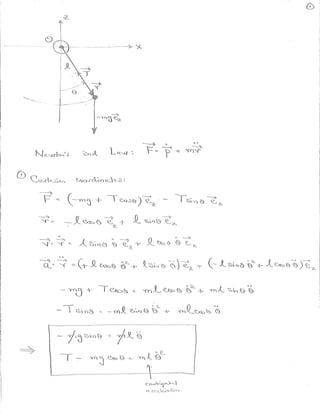 ①
z
O
x
l
T
r
θ
-mg e⃗z
Newton's 2nd Law: F⃗ = ṗ⃗ = m r̈⃗
① Cartesian coordinates:
F⃗ = (-mg + T cosθ) e⃗z - T sinθ e⃗x
r⃗ = -l cosθ e⃗z + l sinθ e⃗x
v⃗ = ṙ⃗ = l sinθ θ̇ e⃗z + l cosθ θ̇ e⃗x
a⃗ = r̈⃗ = (+ l cosθ θ̇² + l sinθ θ̈) e⃗z + (-l sinθ θ̇² + l cosθ θ̈) e⃗x
-mg + T cosθ = ml cosθ θ̇² + ml sinθ θ̈
- T sinθ = -ml sinθ θ̇² + ml cosθ θ̈
- m g sinθ = m l θ̈
⇒ T - mg cosθ = ml θ̇²
centripetal
acceleration